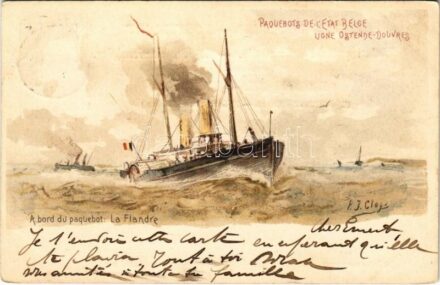 PAQUEBOTS DE L'ETAT BELGE
LIGNE OSTENDE-DOUVRES
A bord du paquebot: La Flandre
Je t'envoie cette carte en espérant qu'elle
te plaira Tout à toi
mes amitiés à toute la famille